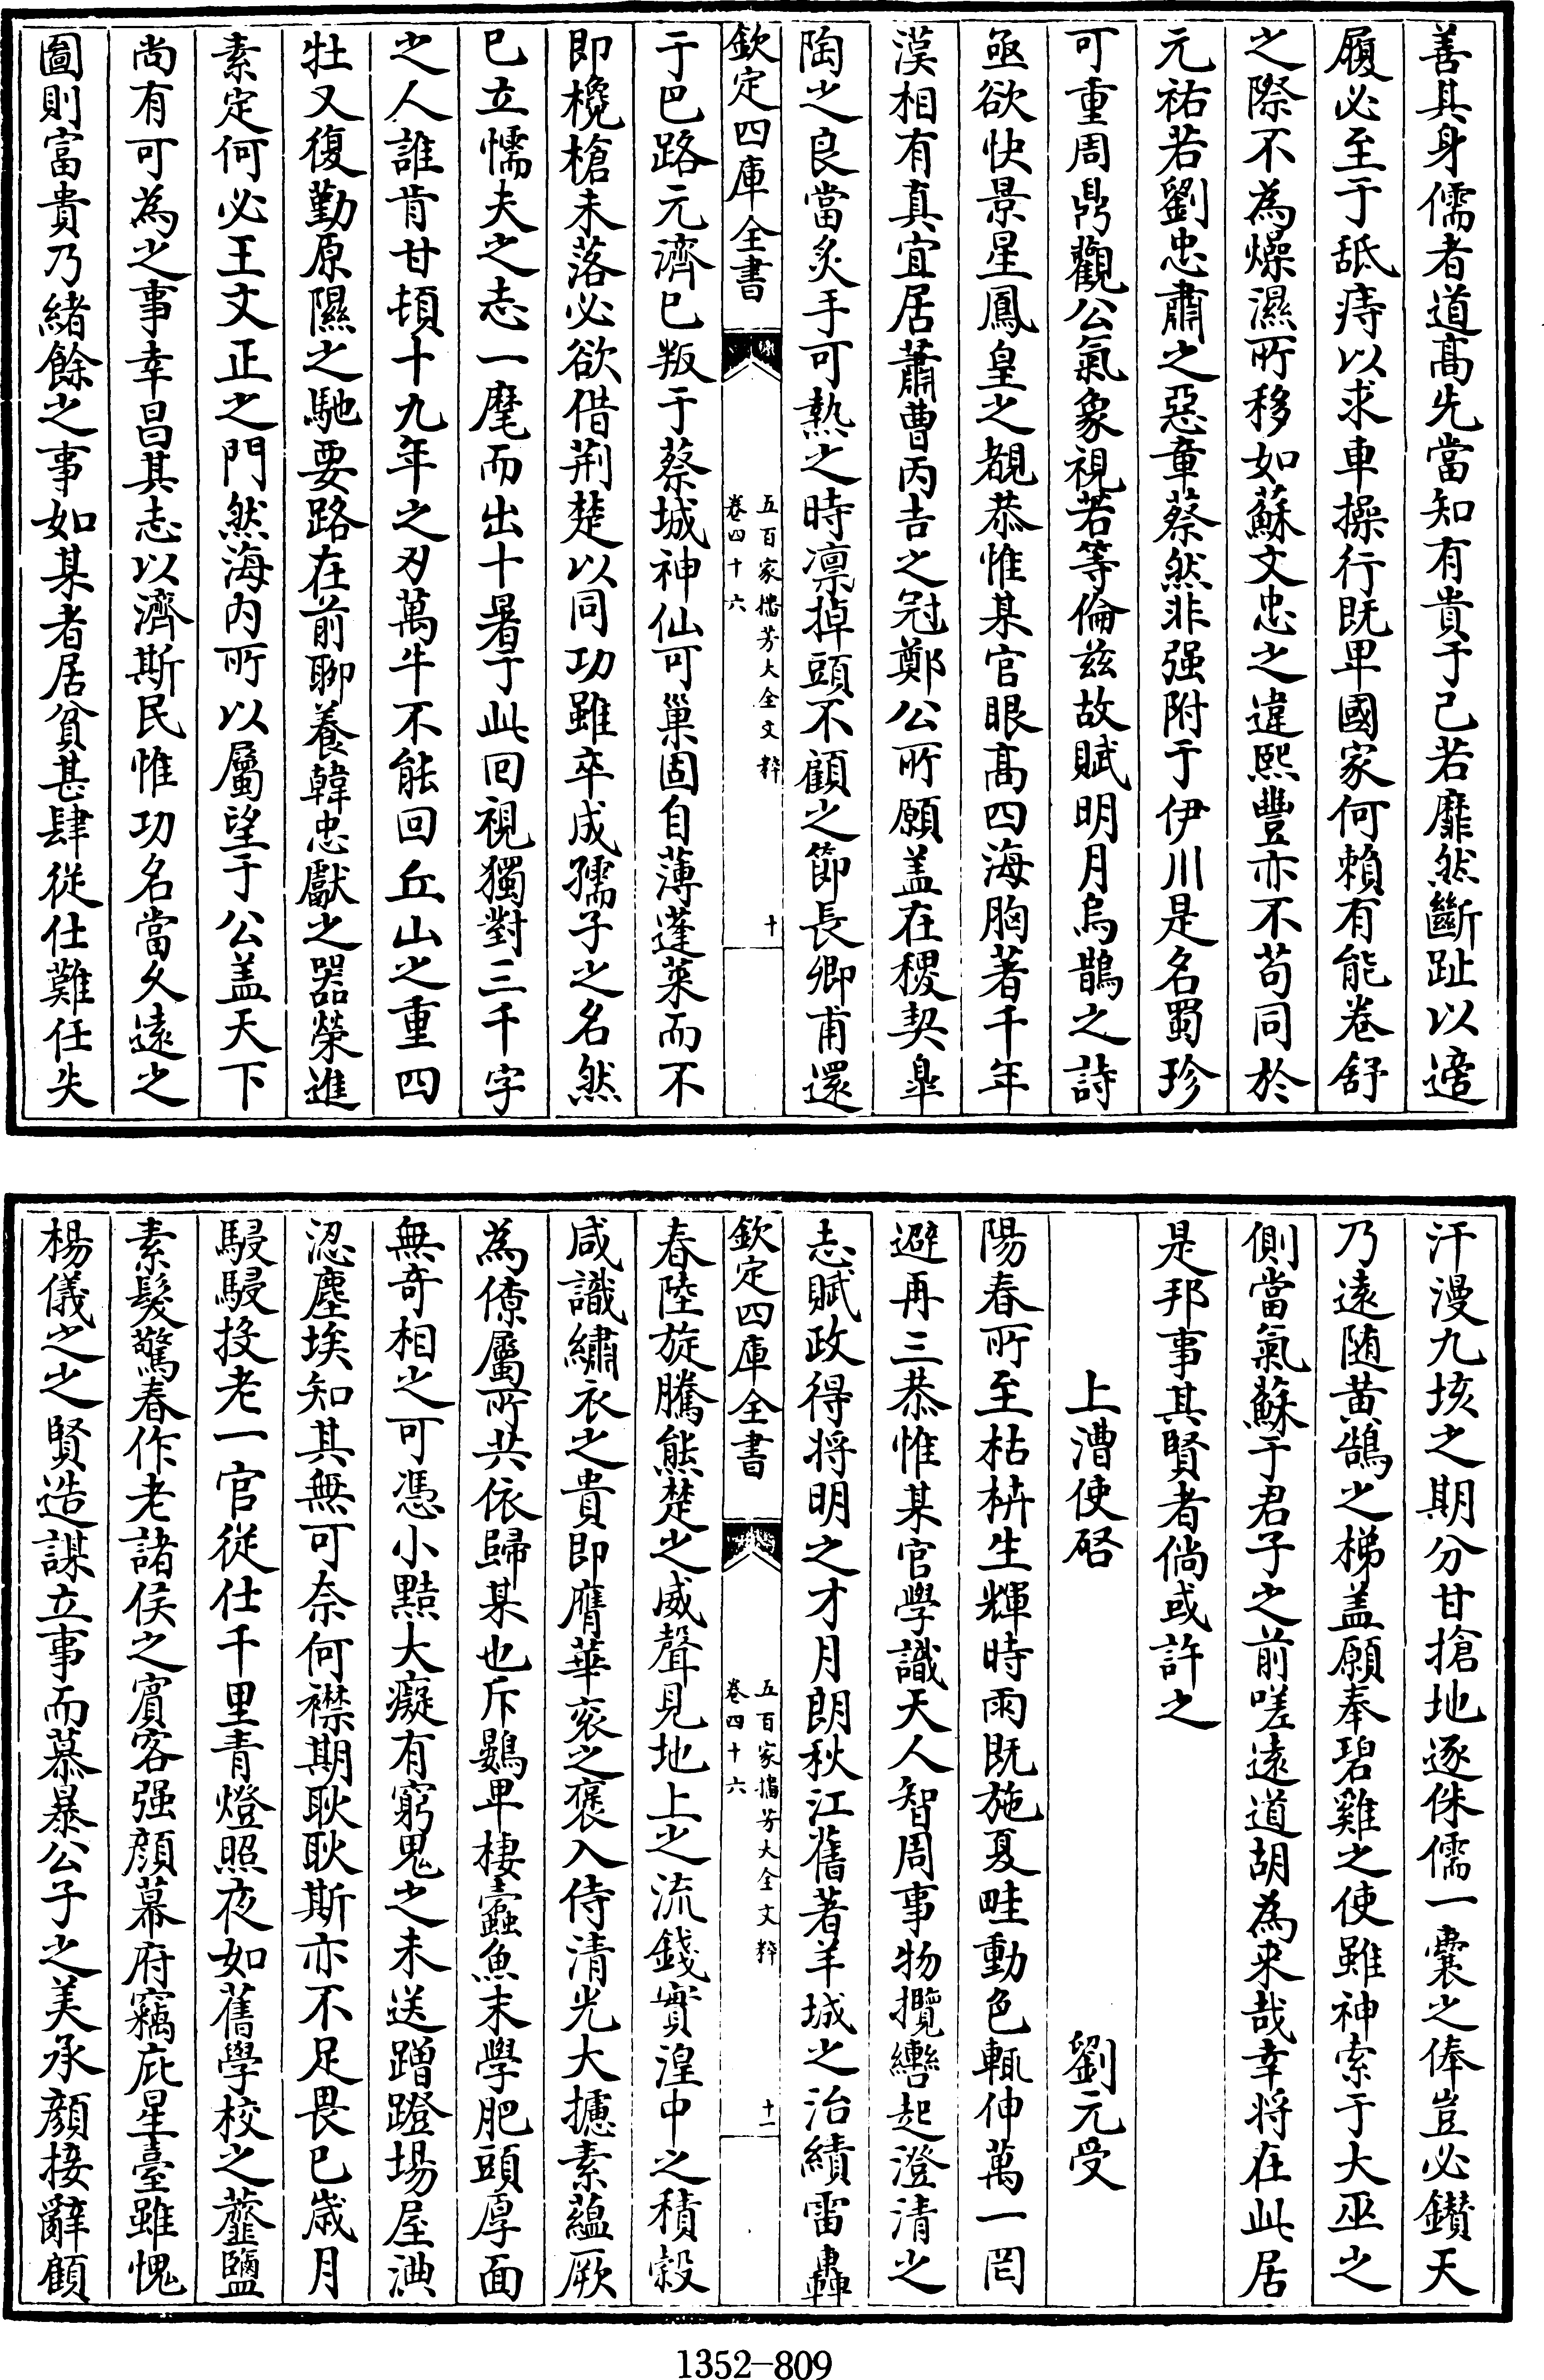 善其身儒者道高先當知有貴于己若靡然斷趾以適
履必至于舐痔以求車操行既卑國家何賴有能卷舒
之際不為燥濕所移如蘇文忠之違熙豐亦不苟同於
元祐若劉忠肅之惡章蔡然非强附于伊川是名蜀珍
可重周鼎觀公氣象視若等倫兹故賦明月烏鵲之詩
亟欲快景星鳳皇之覩恭惟某官眼高四海胸著千年
漠相有真宜居蕭曹丙吉之冠鄭公所願盖在稷契臯
陶之良當炙手可熱之時凛掉頭不顧之節長卿甫還
欽定四庫全書
五百家播芳大全文粹
卷四十六
十
于巴路元濟已叛于蔡城神仙可巢固自薄蓬萊而不
即欃槍未落必欲借荆楚以同功雖卒成孺子之名然
已立懦夫之志一麾而出十暑于此回視獨對三千字
之人誰肯甘頓十九年之刃萬牛不能回丘山之重四
牡又復勤原隰之馳要路在前聊養韓忠獻之器榮進
素定何必王文正之門然海内所以屬望于公盖天下
尚有可為之事幸昌其志以濟斯民惟功名當久遠之
圖則富貴乃緒餘之事如某者居貧甚肆從仕難任失
汗漫九垓之期分甘搶地逐侏儒一囊之俸豈必鑚天
乃遠随黄鵠之梯盖願奉碧雞之使雖神索于大巫之
側當氣蘇于君子之前嗟遠道胡為来哉幸将在此居
是邦事其賢者倘或許之
上漕使啓　　劉元受
陽春所至枯枿生輝時雨既施夏畦動色輒伸萬一罔
避再三恭惟某官學識天人智周事物攬轡起澄清之
志賦政得将明之才月朗秋江舊著羊城之治績雷轟
欽定四庫全書
五百家播芳大全文粹
卷四十六
十一
春陸旋騰熊楚之威聲見地上之流錢實湟中之積榖
咸識繡衣之貴即膺華衮之褒入侍清光大攄素蘊厥
為僚屬所共依歸某也斥鷃卑棲蠧魚末學肥頭厚面
無奇相之可憑小黠大癡有窮鬼之未送蹭蹬場屋㳠
涊塵埃知其無可奈何襟期耿耿斯亦不足畏已歲月
駸駸投老一官從仕千里青燈照夜如舊學校之虀鹽
素髮驚春作老諸侯之賓客强顔幕府竊庇星臺雖愧
楊儀之之賢造謀立事而慕暴公子之美承顔接辭顧
1352-809